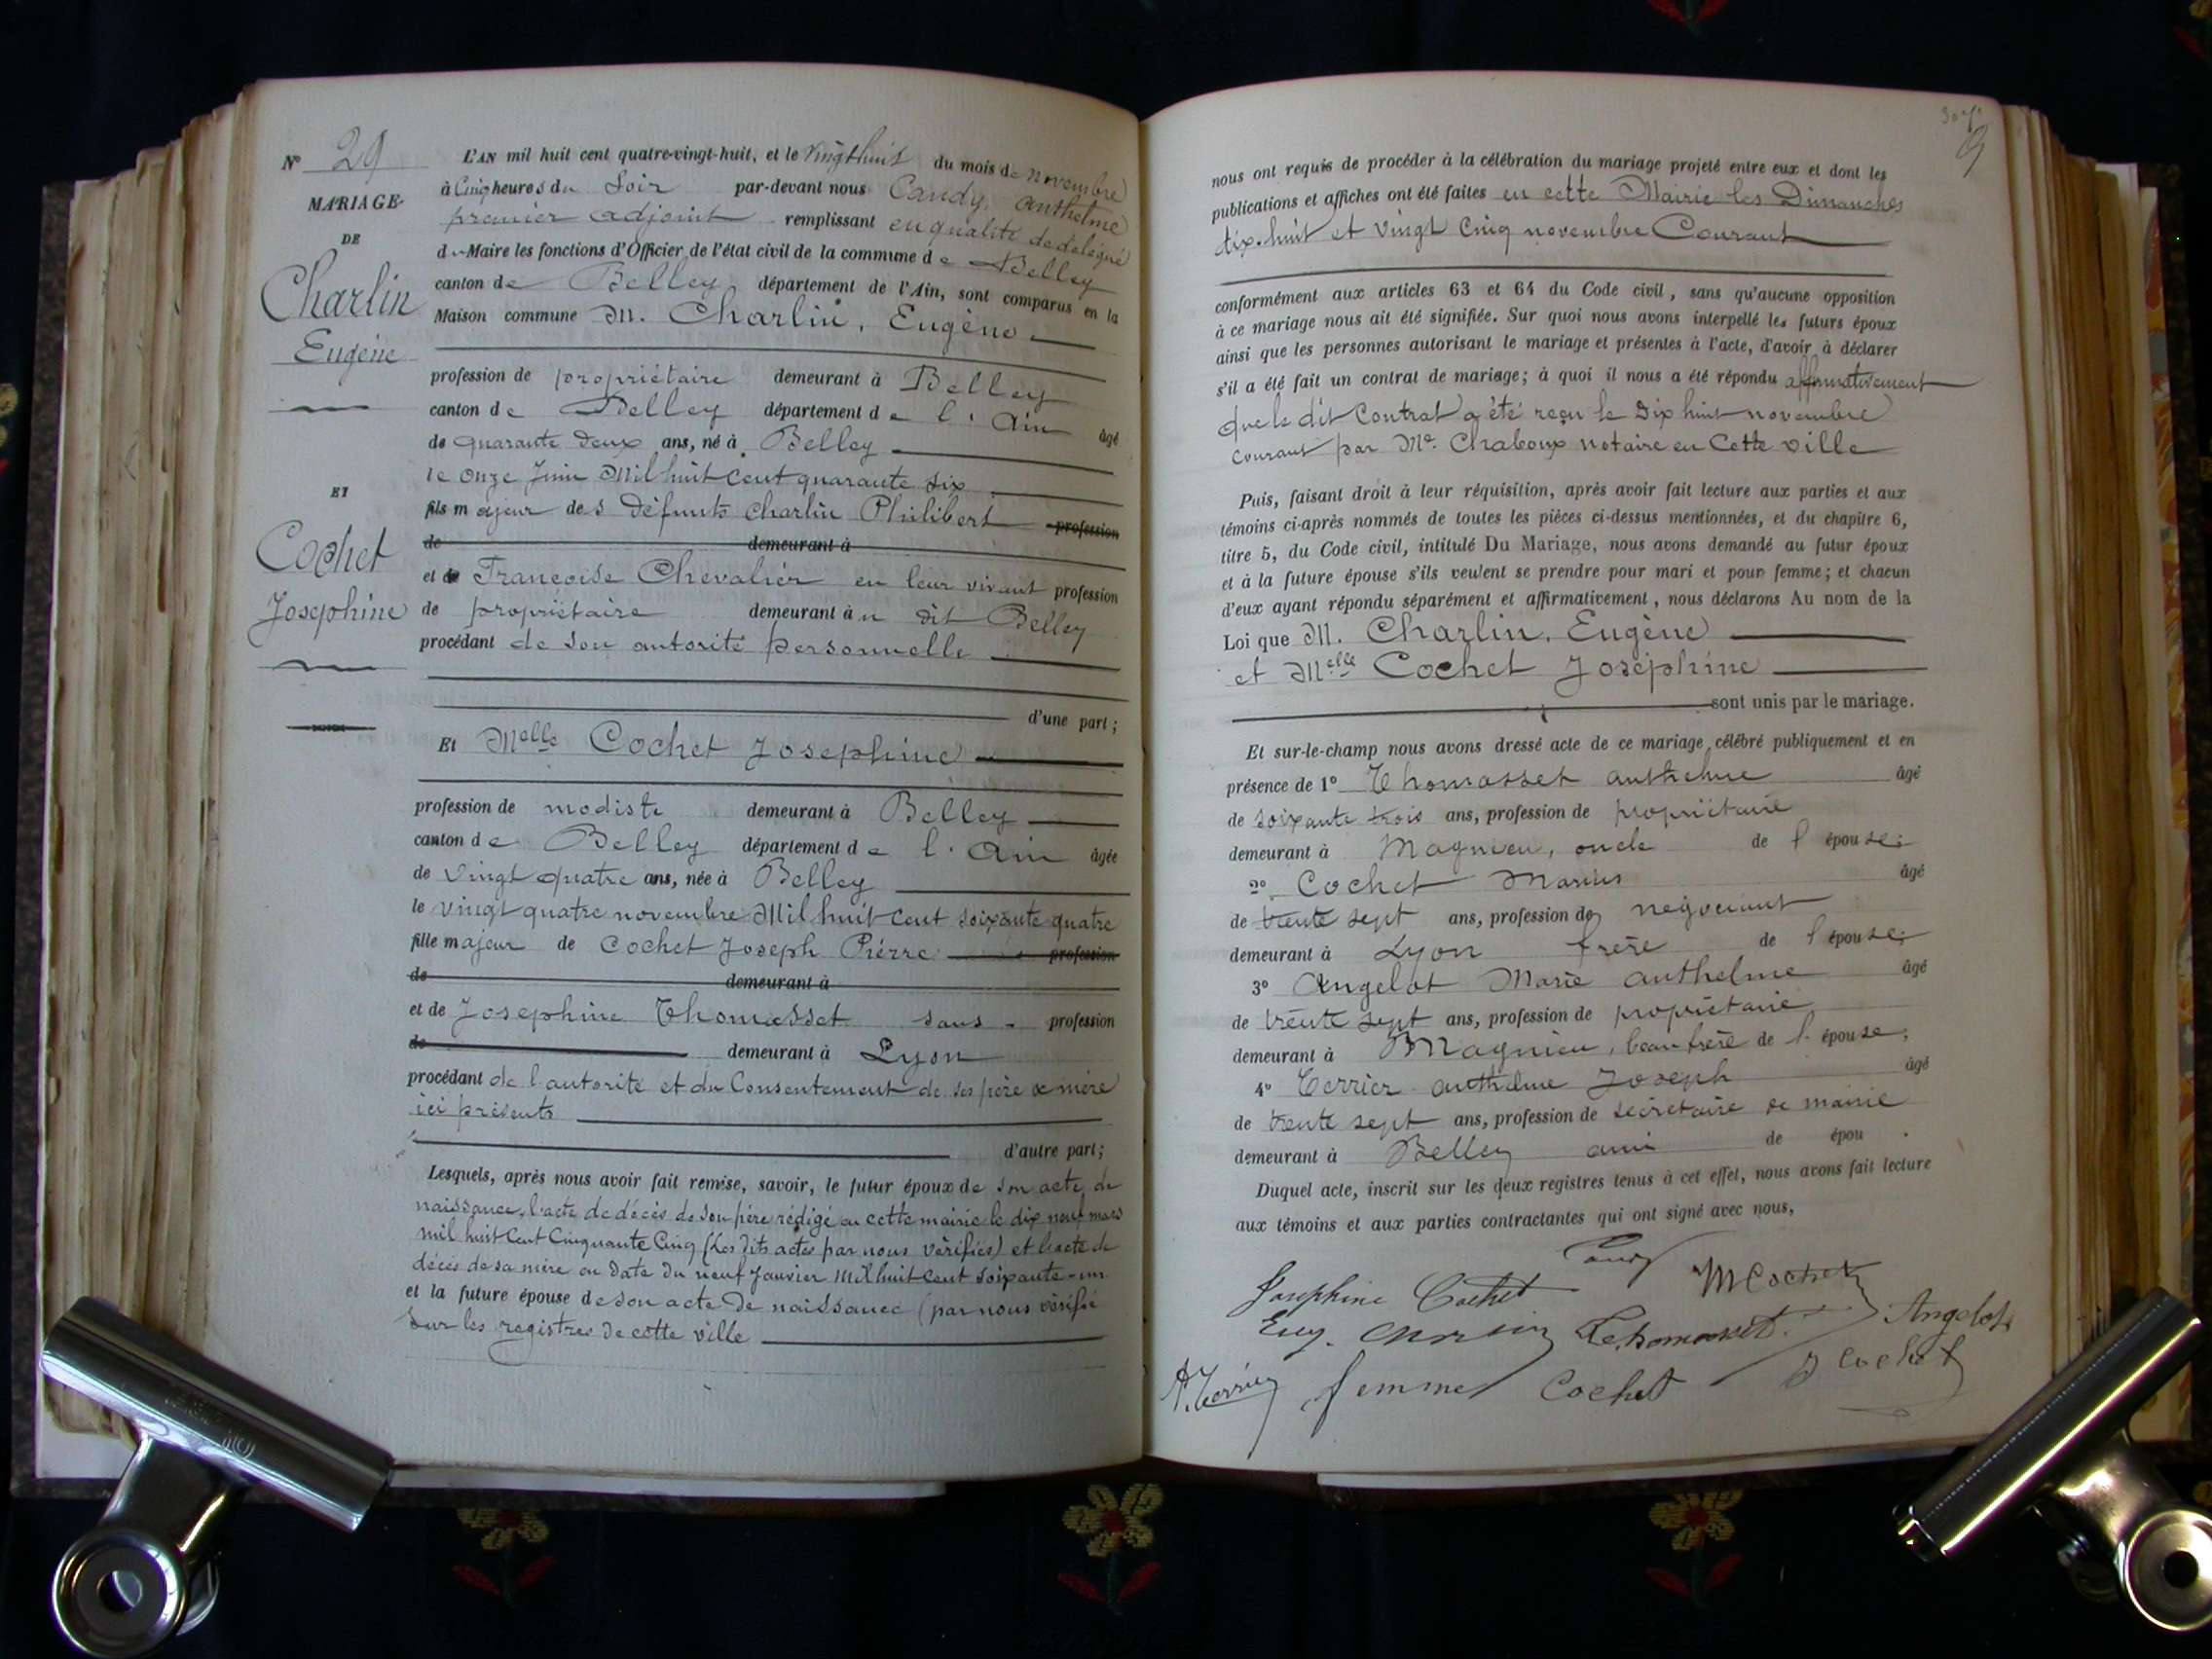 N° 29
MARIAGE
DE
Charlin
Eugène
ET
Cochet
Josephine
L'AN mil huit cent quatre-vingt-huit, et le vingt huit du mois de novembre
à Cinq heures du Soir par-devant nous Candy, anthelme
premier adjoint remplissant en qualité de délégué
du Maire les fonctions d'Officier de l'état civil de la commune de Belley
canton de Belley département de l'Ain, sont comparus en la
Maison commune M. Charlin, Eugène
profession de propriétaire demeurant à Belley
canton de Belley département de l'Ain âgé
de quarante deux ans, né à Belley
le onze Juin Mil huit cent quarante six
fils majeur des défunts Charlin Philibert profession
de demeurant à
et de Françoise Chevalier en leur vivant profession
de propriétaire demeurant au dit Belley
procédant de son autorité personnelle
d'une part;
Et Melle Cochet Josephine
profession de modiste demeurant à Belley
canton de Belley département de l'Ain âgée
de vingt quatre ans, née à Belley
le vingt quatre novembre Mil huit cent soixante quatre
fille majeur de Cochet Joseph Piérre profession
de demeurant à
et de Josephine Thomasset sans profession
de demeurant à Lyon
procédant de l'autorité et du Consentement de ses père & mère
ici présents
d'autre part;
Lesquels, après nous avoir fait remise, savoir, le futur époux de son acte de
naissance, l'acte de décès de son père rédigé en cette mairie le dix neuf mars
mil huit Cent Cinquante Cinq (Les dits actes par nous vérifiés) et l'acte de
décès de sa mère en date du neuf Janvier Mil huit cent soixante-un
et la future épouse de son acte de naissance (par nous vérifié
sur les registres de cette ville
nous ont requis de procéder à la célébration du mariage projeté entre eux et dont les
publications et affiches ont été faites en cette Mairie les Dimanches
dix-huit et vingt Cinq novembre Courant
conformément aux articles 63 et 64 du Code civil, sans qu'aucune opposition
à ce mariage nous ait été signifiée. Sur quoi nous avons interpellé les futurs époux
ainsi que les personnes autorisant le mariage et présentes à l'acte, d'avoir à déclarer
s'il a été fait un contrat de mariage; à quoi il nous a été répondu affirmativement
que le dit Contrat a été reçu le Dix huit novembre
courant par Me. Chaboux notaire en Cette ville
Puis, faisant droit à leur réquisition, après avoir fait lecture aux parties et aux
témoins ci-après nommés de toutes les pièces ci-dessus mentionnées, et du chapitre 6,
titre 5, du Code civil, intitulé Du Mariage, nous avons demandé au futur époux
et à la future épouse s'ils veulent se prendre pour mari et pour femme; et chacun
d'eux ayant répondu séparément et affirmativement, nous déclarons Au nom de la
Loi que M. Charlin, Eugène
et Melle Cochet Joséphine
sont unis par le mariage.
Et sur-le-champ nous avons dressé acte de ce mariage célébré publiquement et en
présence de 1° Thomasset anthelme âgé
de soixante trois ans, profession de propriétaire
demeurant à Magnieu, oncle de l'épouse;
2° Cochet Marius âgé
de trente sept ans, profession de négociant
demeurant à Lyon frère de l'épouse;
3° Angelot Marie anthelme âgé
de trente sept ans, profession de propriétaire
demeurant à Magnieu, beau frère de l'épouse;
4° Terrier anthelme Joseph âgé
de trente sept ans, profession de secrétaire de mairie
demeurant à Belley ami de épou .
Duquel acte, inscrit sur les deux registres tenus à cet effet, nous avons fait lecture
aux témoins et aux parties contractantes qui ont signé avec nous,
Candy
Josephine Cochet M Cochet
Eug. Charlin Thomasset. Angelot
A. Terrier femme Cochet J Cochet